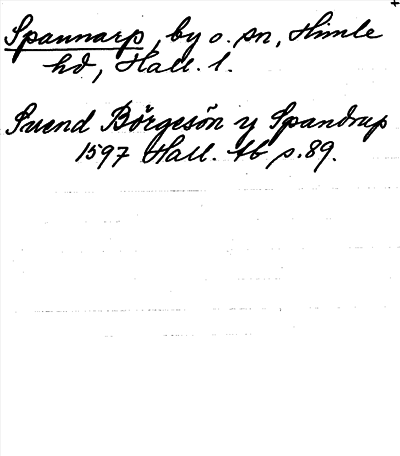 Spannarp, by o. sn, Himle
hd, Hall. l.
Suend Börgesön y Spandrup
1597 Hall. tb s. 89.